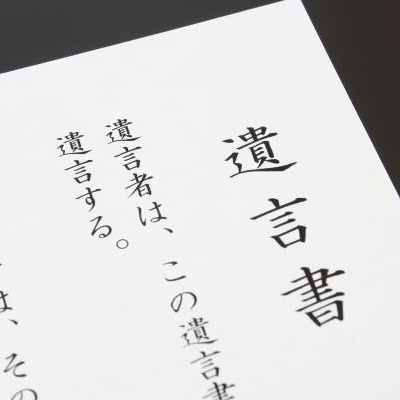 遺言書
遺言者は、この遺言書
遺言する。
は、その